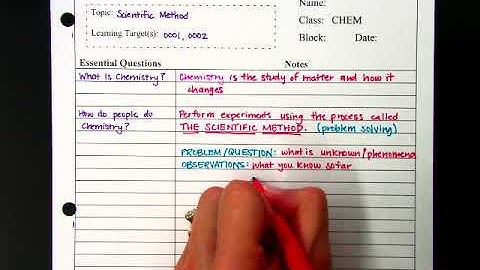 Name:
Topic: Scientific Method
Class: CHEM
Learning Target(s): 0001, 0002
Block: Date:
Essential Questions Notes
What is Chemistry? Chemistry is the study of matter and how it
changes
How do people do Perform experiments using the process called
Chemistry? THE SCIENTIFIC METHOD. (problem solving)
PROBLEM/QUESTION: what is unknown/phenomena
OBSERVATIONS: what you know so far